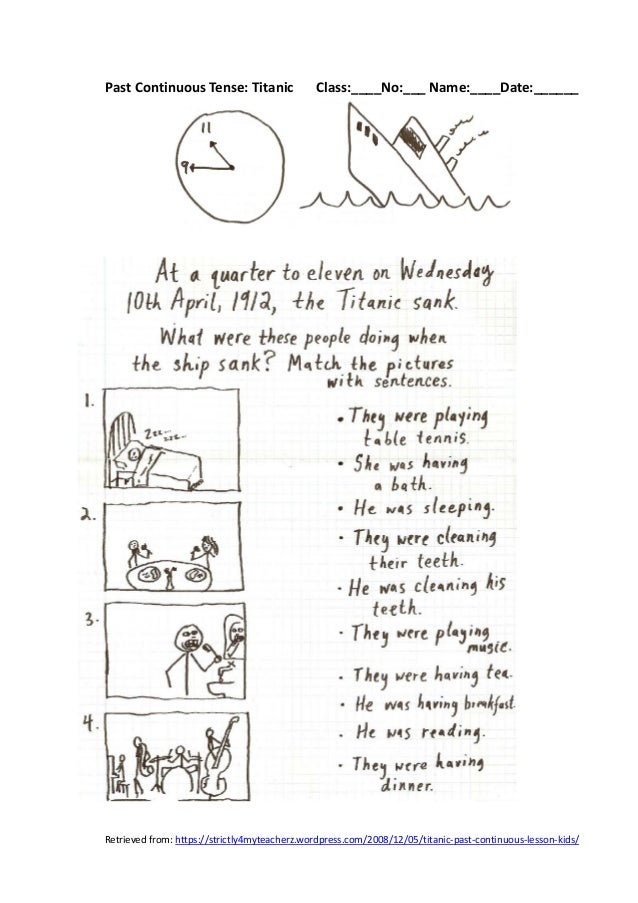 Past Continuous Tense: Titanic Class:____No:___ Name:____Date:______
11
9
At a quarter to eleven on Wednesday
10th April, 1912, the Titanic sank.
What were these people doing when
the ship sank? Match the pictures
with sentences.
1.
zzz... zzz...
• They were playing
table tennis.
• She was having
a bath.
• He was sleeping.
2.
• They were cleaning
their teeth.
• He was cleaning his
teeth.
3.
• They were playing
music.
• They were having tea.
• He was having breakfast.
4.
• He was reading.
• They were having
dinner.
Retrieved from: https://strictly4myteacherz.wordpress.com/2008/12/05/titanic-past-continuous-lesson-kids/